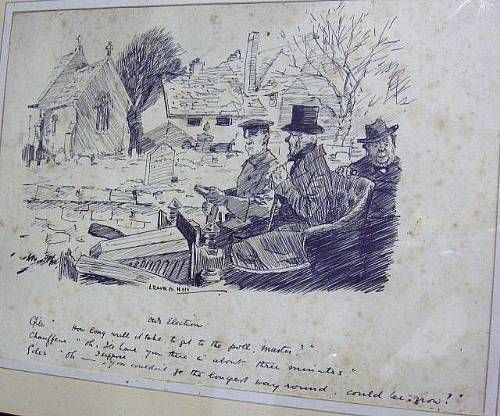 LEONARD HILL
Our Election
Giles "How long will it take to get to the poll, Master?"
Chauffeur "Oh, I'll have you there in about three minutes."
Giles "Oh — I suppose you couldn't go the longest way round, could 'ee, now?"